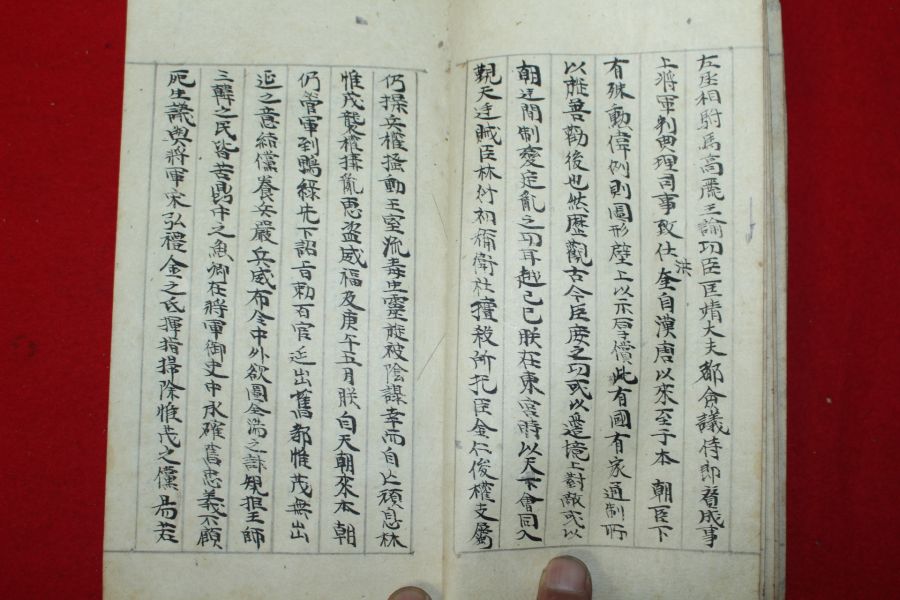 左丞相駙馬高麗王諭功臣匡靖大夫都僉議侍郎贊成事
上將軍判典理司事致仕洪奎自漢唐以來至于本 朝臣下
有殊勳偉例則圖形壁上以示后▢價此有國有家通制所
以旌善勸後也然歷觀古今臣庶之功或以邊境上對敵或以
朝廷間制變定亂之功耳越己巳朕在東宮時以天下會同入
覲天廷賊臣林衍初稱衛社擅殺所犯臣金仁俊權支屬
仍操兵權搔動王室流毒生靈旋被陰謀幸而自亡頑息林
惟茂襲權搆亂恣盜威福及庚午五月朕自天朝來本朝
仍管軍到鴨綠先下詔旨勅百官迎出舊都惟茂無出
迎之意締儻養兵嚴兵威布令中外欲圖全湍之計規拒王師
三韓之民皆苦鼎中之魚卿在將軍御史中丞確奮忠義不顧
死生議與將軍宋弘禮金之氐揮指掃除惟茂之儻局若